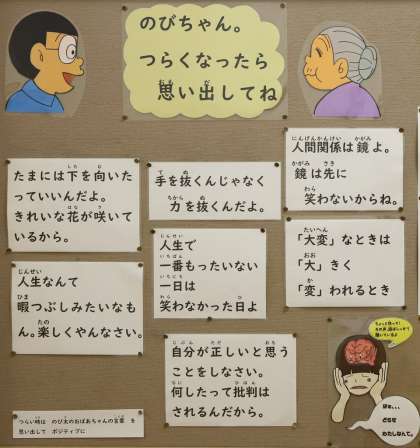 のびちゃん。
つらくなったら
思い出してね
人間関係は鏡よ。
鏡は先に
笑わないからね。
たまには下を向いた
っていいんだよ。
きれいな花が咲いて
いるから。
手を抜くんじゃなく
力を抜くんだよ。
人生で
一番もったいない
一日は
笑わなかった日よ
「大変」なときは
「大」きく
「変」われるとき
人生なんて
暇つぶしみたいなも
ん。楽しくやんなさい。
自分が正しいと思う
ことをしなさい。
何したって批判は
されるんだから。
つらい時は のび太のおばあちゃんの言葉 を
思い出して ポジティブに
どうせ
わたしなんて。